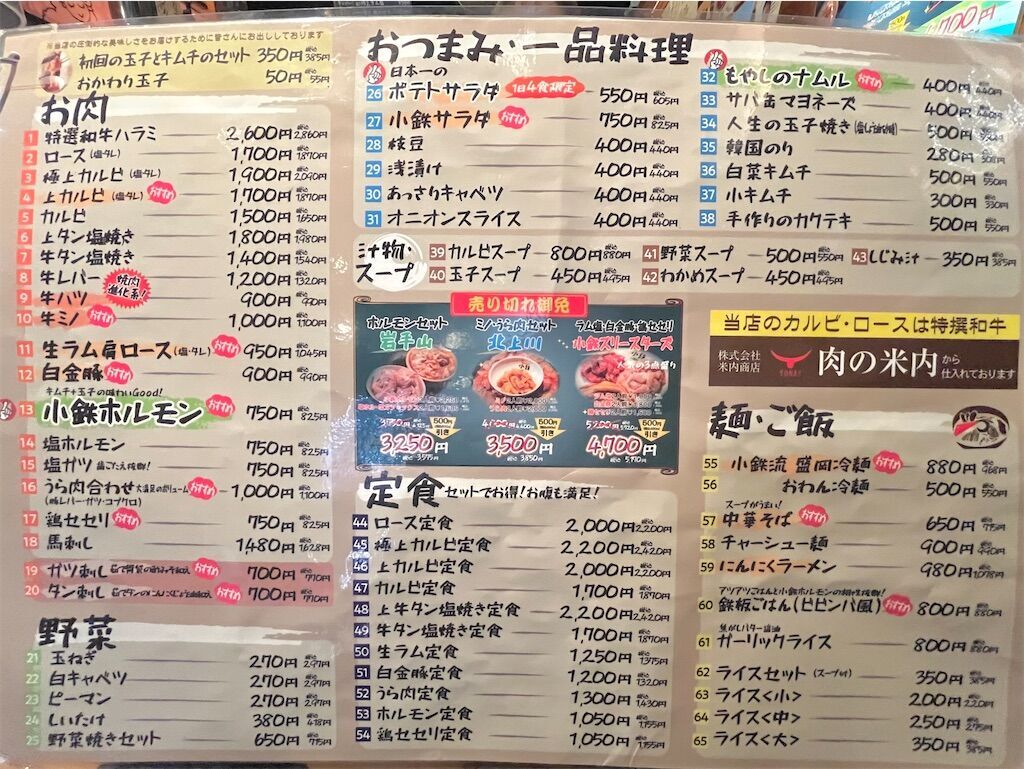 ※当店の圧倒的な美味しさをお届けするために皆さんにお出ししております
初回の玉子とキムチのセット 350円 税込385円
おかわり玉子 50円 税込55円
お肉
1 特選和牛ハラミ 2,600円 税込2,860円
2 ロース(塩・タレ) 1,700円 税込1,870円
3 極上カルビ(塩・タレ) 1,900円 税込2,090円
4 上カルビ(塩・タレ) おすすめ 1,700円 税込1,870円
5 カルビ 1,500円 税込1,650円
6 上タン塩焼き 1,800円 税込1,980円
7 牛タン塩焼き 1,400円 税込1,540円
8 牛レバー 1,200円 税込1,320円
焼肉進化系!
9 牛ハツ 900円 税込990円
10 牛ミノ おすすめ 1,000円 税込1,100円
11 生ラム肩ロース(塩・タレ) おすすめ 950円 税込1,045円
12 白金豚 おすすめ 900円 税込990円
キムチ+玉子の味わいGood!
13 小鉄ホルモン おすすめ 750円 税込825円
14 塩ホルモン 750円 税込825円
15 塩ガツ 歯ごたえ抜群! 750円 税込825円
16 うら肉合わせ 大満足のボリューム おすすめ 1,000円 税込1,100円
(豚レバー・ガツ・コブクロ)
17 鶏セセリ おすすめ 750円 税込825円
18 馬刺し 1,480円 税込1,628円
19 ガツ刺し おすすめ 700円 税込770円
20 タン刺し おすすめ 700円 税込770円
野菜
21 玉ねぎ 270円 税込297円
22 白キャベツ 270円 税込297円
23 ピーマン 270円 税込297円
24 しいたけ 380円 税込418円
25 野菜焼きセット 650円 税込715円
おつまみ・一品料理
日本一の
26 ポテトサラダ 1日4食限定 550円 税込605円
27 小鉄サラダ おすすめ 750円 税込825円
28 枝豆 400円 税込440円
29 浅漬け 400円 税込440円
30 あっさりキャベツ 400円 税込440円
31 オニオンスライス 400円 税込440円
32 もやしのナムル おすすめ 400円 税込440円
33 サバ缶マヨネーズ 400円 税込440円
34 人生の玉子焼き 500円 税込550円
35 韓国のり 280円 税込308円
36 白菜キムチ 500円 税込550円
37 小キムチ 300円 税込330円
38 手作りのカクテキ 500円 税込550円
汁物・スープ
39 カルビスープ 800円 税込880円
40 玉子スープ 450円 税込495円
41 野菜スープ 500円 税込550円
42 わかめスープ 450円 税込495円
43 しじみ汁 350円 税込385円
売り切れ御免
ホルモンセット
岩手山
500円引き
3,250円
税込3,575円
ミノ・うら肉セット
北上川
500円引き
3,500円
税込3,850円
ラム塩・白金豚・鶏セセリ
小鉄スリースターズ
人気の3点盛り
500円引き
4,700円
税込5,170円
当店のカルビ・ロースは特撰和牛
株式会社米内商店
YONAI
肉の米内から仕入れております
定食 セットでお得!お腹も満足!
44 ロース定食 2,000円 税込2,200円
45 極上カルビ定食 2,200円 税込2,420円
46 上カルビ定食 2,000円 税込2,200円
47 カルビ定食 1,700円 税込1,870円
48 上牛タン塩焼き定食 2,200円 税込2,420円
49 牛タン塩焼き定食 1,700円 税込1,870円
50 生ラム定食 1,250円 税込1,375円
51 白金豚定食 1,200円 税込1,320円
52 うら肉定食 1,300円 税込1,430円
53 ホルモン定食 1,050円 税込1,155円
54 鶏セセリ定食 1,050円 税込1,155円
麺・ご飯
55 小鉄流 盛岡冷麺 おすすめ 880円 税込968円
56 おわん冷麺 500円 税込550円
スープがうまい!
57 中華そば おすすめ 650円 税込715円
58 チャーシュー麺 900円 税込990円
59 にんにくラーメン 980円 税込1,078円
アツアツごはんと小鉄ホルモンの相性抜群!
60 鉄板ごはん(ビビンバ風) おすすめ 800円 税込880円
焦がしバター醤油
61 ガーリックライス 800円 税込880円
62 ライスセット(スープ付) 350円 税込385円
63 ライス<小> 200円 税込220円
64 ライス<中> 250円 税込275円
65 ライス<大> 350円 税込385円